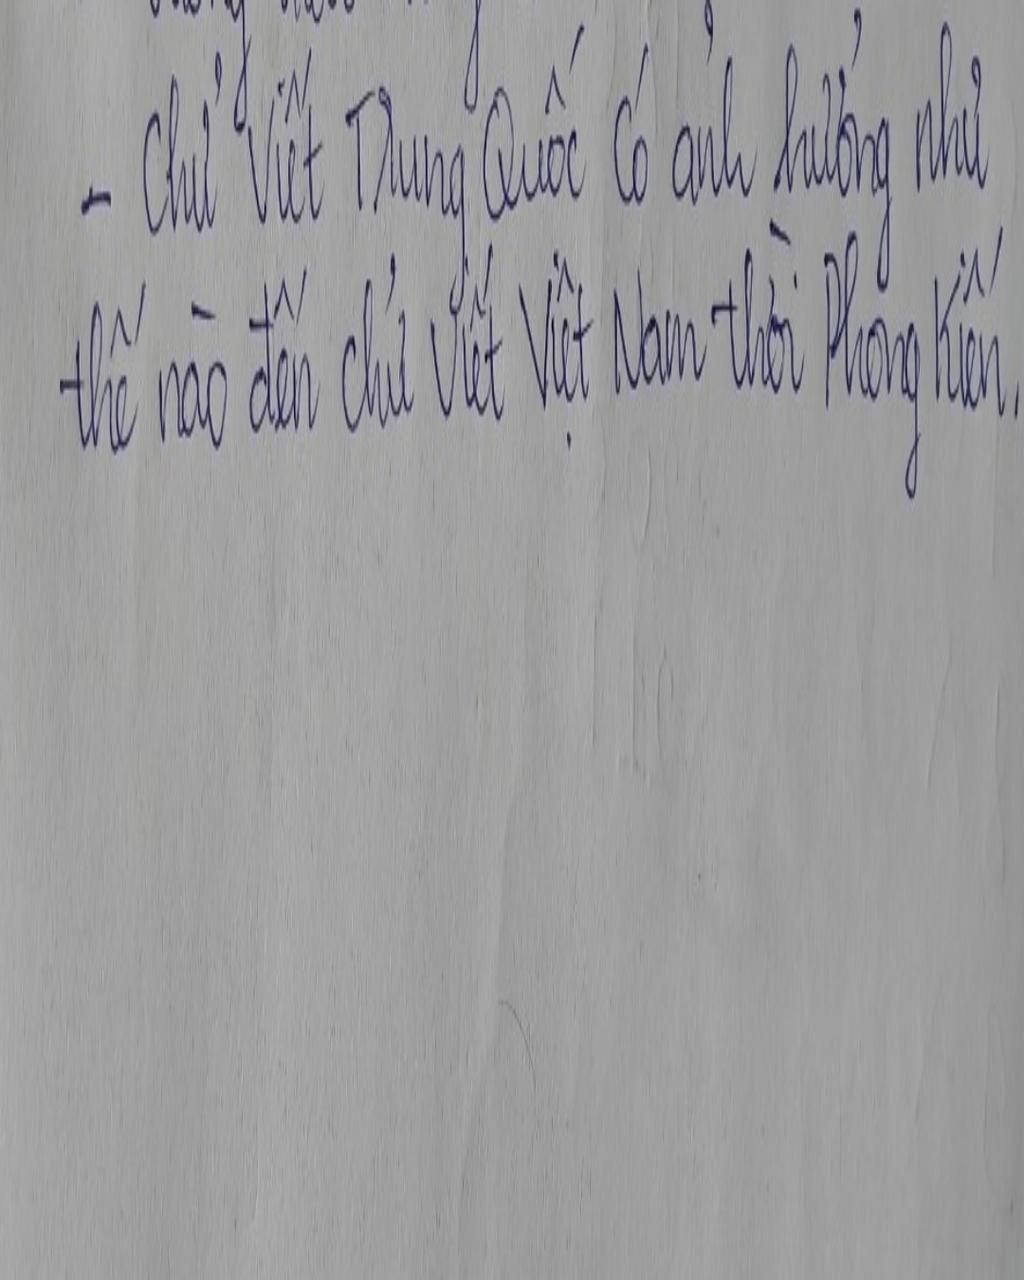 - Chử Viết Trung Quốc Có ảnh hưởng như
thế nào đến chử Viết Việt Nam thời Phong Kiến.